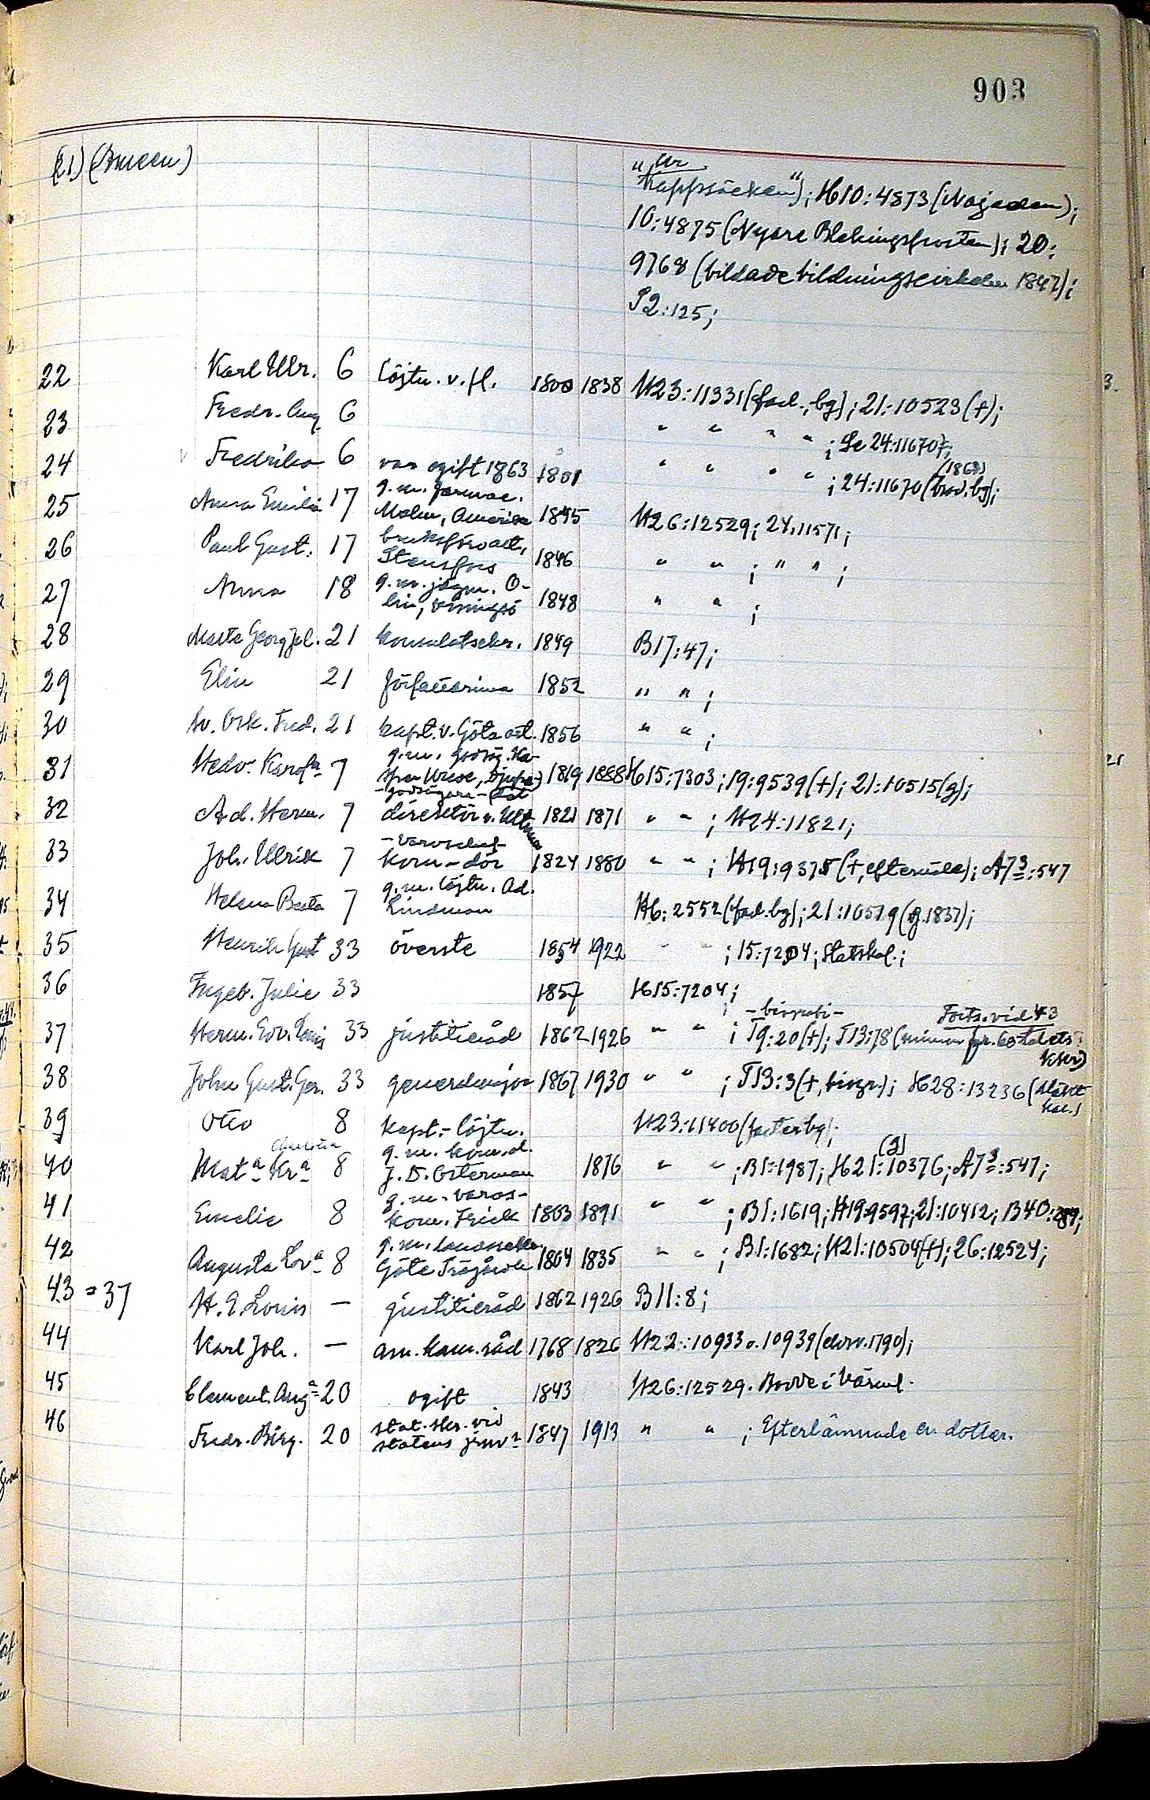 903
(21) (Ameen) "Ur
Kappsäcken"); H10:4873 (Najaden);
10:4875 (Nyare Blekingsposten); 20:
9768 (bildade bildningscirkeln 1847);
S2:125;
22 Karl Ulr. 6 löjtn. v. fl. 1800 1838 H23:11331 (fad., bg); 21:10523 (+);
23 Fredr. Aug 6 " " " " ; Se 24:11670;
24 Fredrika 6 var ogift 1863 1801 " " " " ; 24:11670 (brod. bg);
(1863)
25 Anna Emilia 17 g. m.
Malm, Amerika 1845 H26:12529; 24:11571;
26 Paul Gust. 17 bruksförvalt.,
Stensfors 1846 " " ; " " ;
27 Anna 18 g. m. jägm. O-
lin, Visingsö 1848 " " ;
28 Malte Georg Jul. 21 konsulatsekr. 1849 B17:47;
29 Elin 21 författarinna 1852 " " ;
30 Sv. Osk. Fred. 21 kapt. v. Göta art. 1856 " " ;
31 Hedv. Karol<sup>a</sup> 7 g. m. godsäg. Ka-
1819 1888 H15:7303; 19:9539 (+); 21:10515 (g);
32 Ad. Herm. 7 -godsägare-
direktör v. 1821 1871 " " ; H24:11821;
33 Joh. Ulrik 7 -varvschef-
kom-dör 1824 1880 " " ; H19:9375 (+, eftermäle); A7<sup>3</sup>:547
34 Helena Beata 7 g. m. löjtn. Ad.
Lindman H6:2552 (fad. bg); 21:10519 (g. 1837);
35 Henrik Gust 33 överste 1854 1922 " " ; 15:7204; Statskal.;
36 Ingeb. Julie 33 1857 H15:7204;
37 Herm. Edv. Louis 33 justitieråd 1862 1926 " " ; -biografi- T9:20 (+); T13:78 (
Forts. vid 43
38 John Gust. Ger. 33 generalmajor 1867 1930 " " ; T13:3 (+, biogr.); H28:13236 (släkt
kal.)
39 Otto 8 kapt.-löjtn. H23:11400 (faster bg);
40 Mat<sup>a</sup> Kr<sup>a</sup> 8 g. m. kom.d.
J. D. Osterman 1876 " " ; B1:1987; H21:10376 (g); A7<sup>3</sup>:547;
41 Emelie 8 g. m. varvs-
kom. Frick 1803 1891 " " ; B1:1619; H19:9597; 21:10412; B40:289;
42 Augusta Lov<sup>a</sup> 8 g. m. landssekr
Göte Trägårdh 1804 1835 " " ; B1:1682; H21:10504 (+); 26:12524;
43 = 37 H. E. Louis — justitieråd 1862 1926 B11:8;
44 Karl Joh. — am. kam. råd 1768 1826 H22:10933 o. 10939 (elev. 1790);
45 Clement. Aug<sup>a</sup> 20 ogift 1843 H26:12529. Bodde i Värml.
46 Fredr. Birg. 20 stat. skr. vid
statens järnv<sup>r</sup> 1847 1913 " " ; Efterlämnade en dotter.